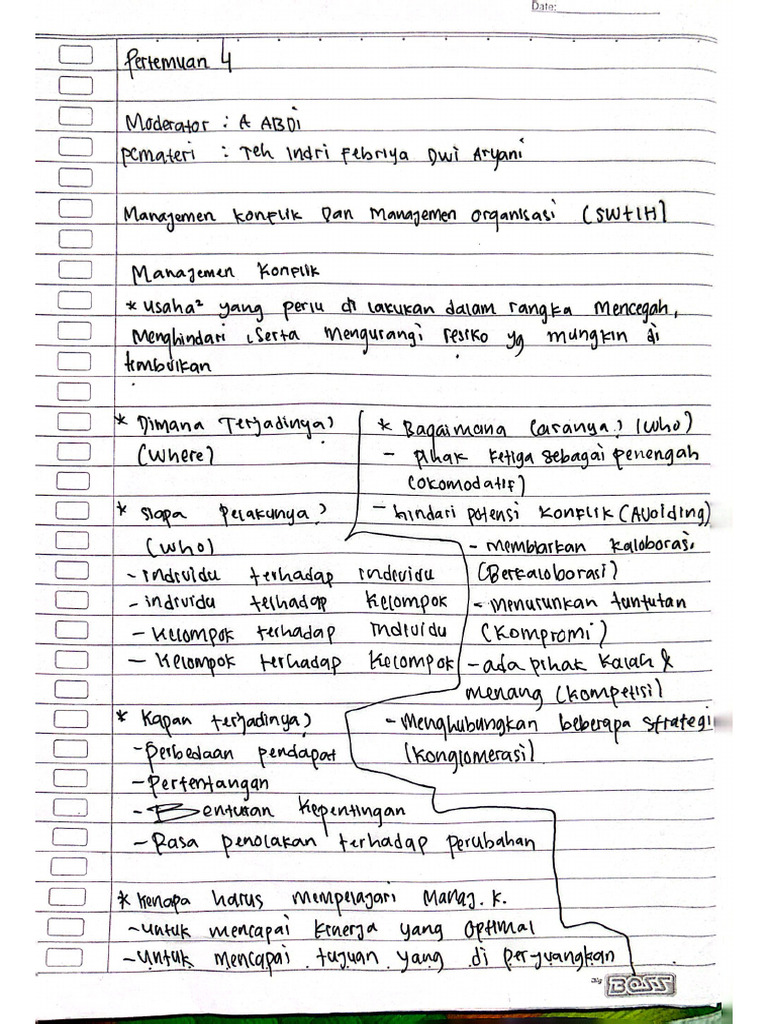 Date:
Pertemuan 4
Moderator : A ABDi
pemateri : Teh Indri Febriya Dwi Aryani
Manajemen Konflik Dan Manajemen Organisasi (SW+1H)
Manajemen Konflik
* usaha² yang perlu di lakukan dalam rangka mencegah,
Menghindari, Serta mengurangi resiko yg mungkin di
timbulkan
* Dimana Terjadinya?
(Where)
* Siapa Pelakunya?
(Who)
- individu terhadap individu
- individu terhadap Kelompok
- Kelompok terhadap Individu
- Kelompok terhadap Kelompok
* Kapan terjadinya?
- perbedaan pendapat
- Pertentangan
- Benturan Kepentingan
- Rasa penolakan terhadap perubahan
* Kenapa harus mempelajari Manaj. K.
- untuk mencapai kinerja yang optimal
- Untuk mencapai tujuan yang di perjuangkan
* Bagaimana Caranya? (Who)
- pihak ketiga sebagai penengah
(okomodatif)
- hindari potensi konflik (Avoiding)
- membiarkan kaloborasi
(Berkaloborasi)
- menurunkan tuntutan
(Kompromi)
- ada pihak kalah &
menang (kompetisi)
- Menghubungkan beberapa strategi
(konglomerasi)
Big BOSS